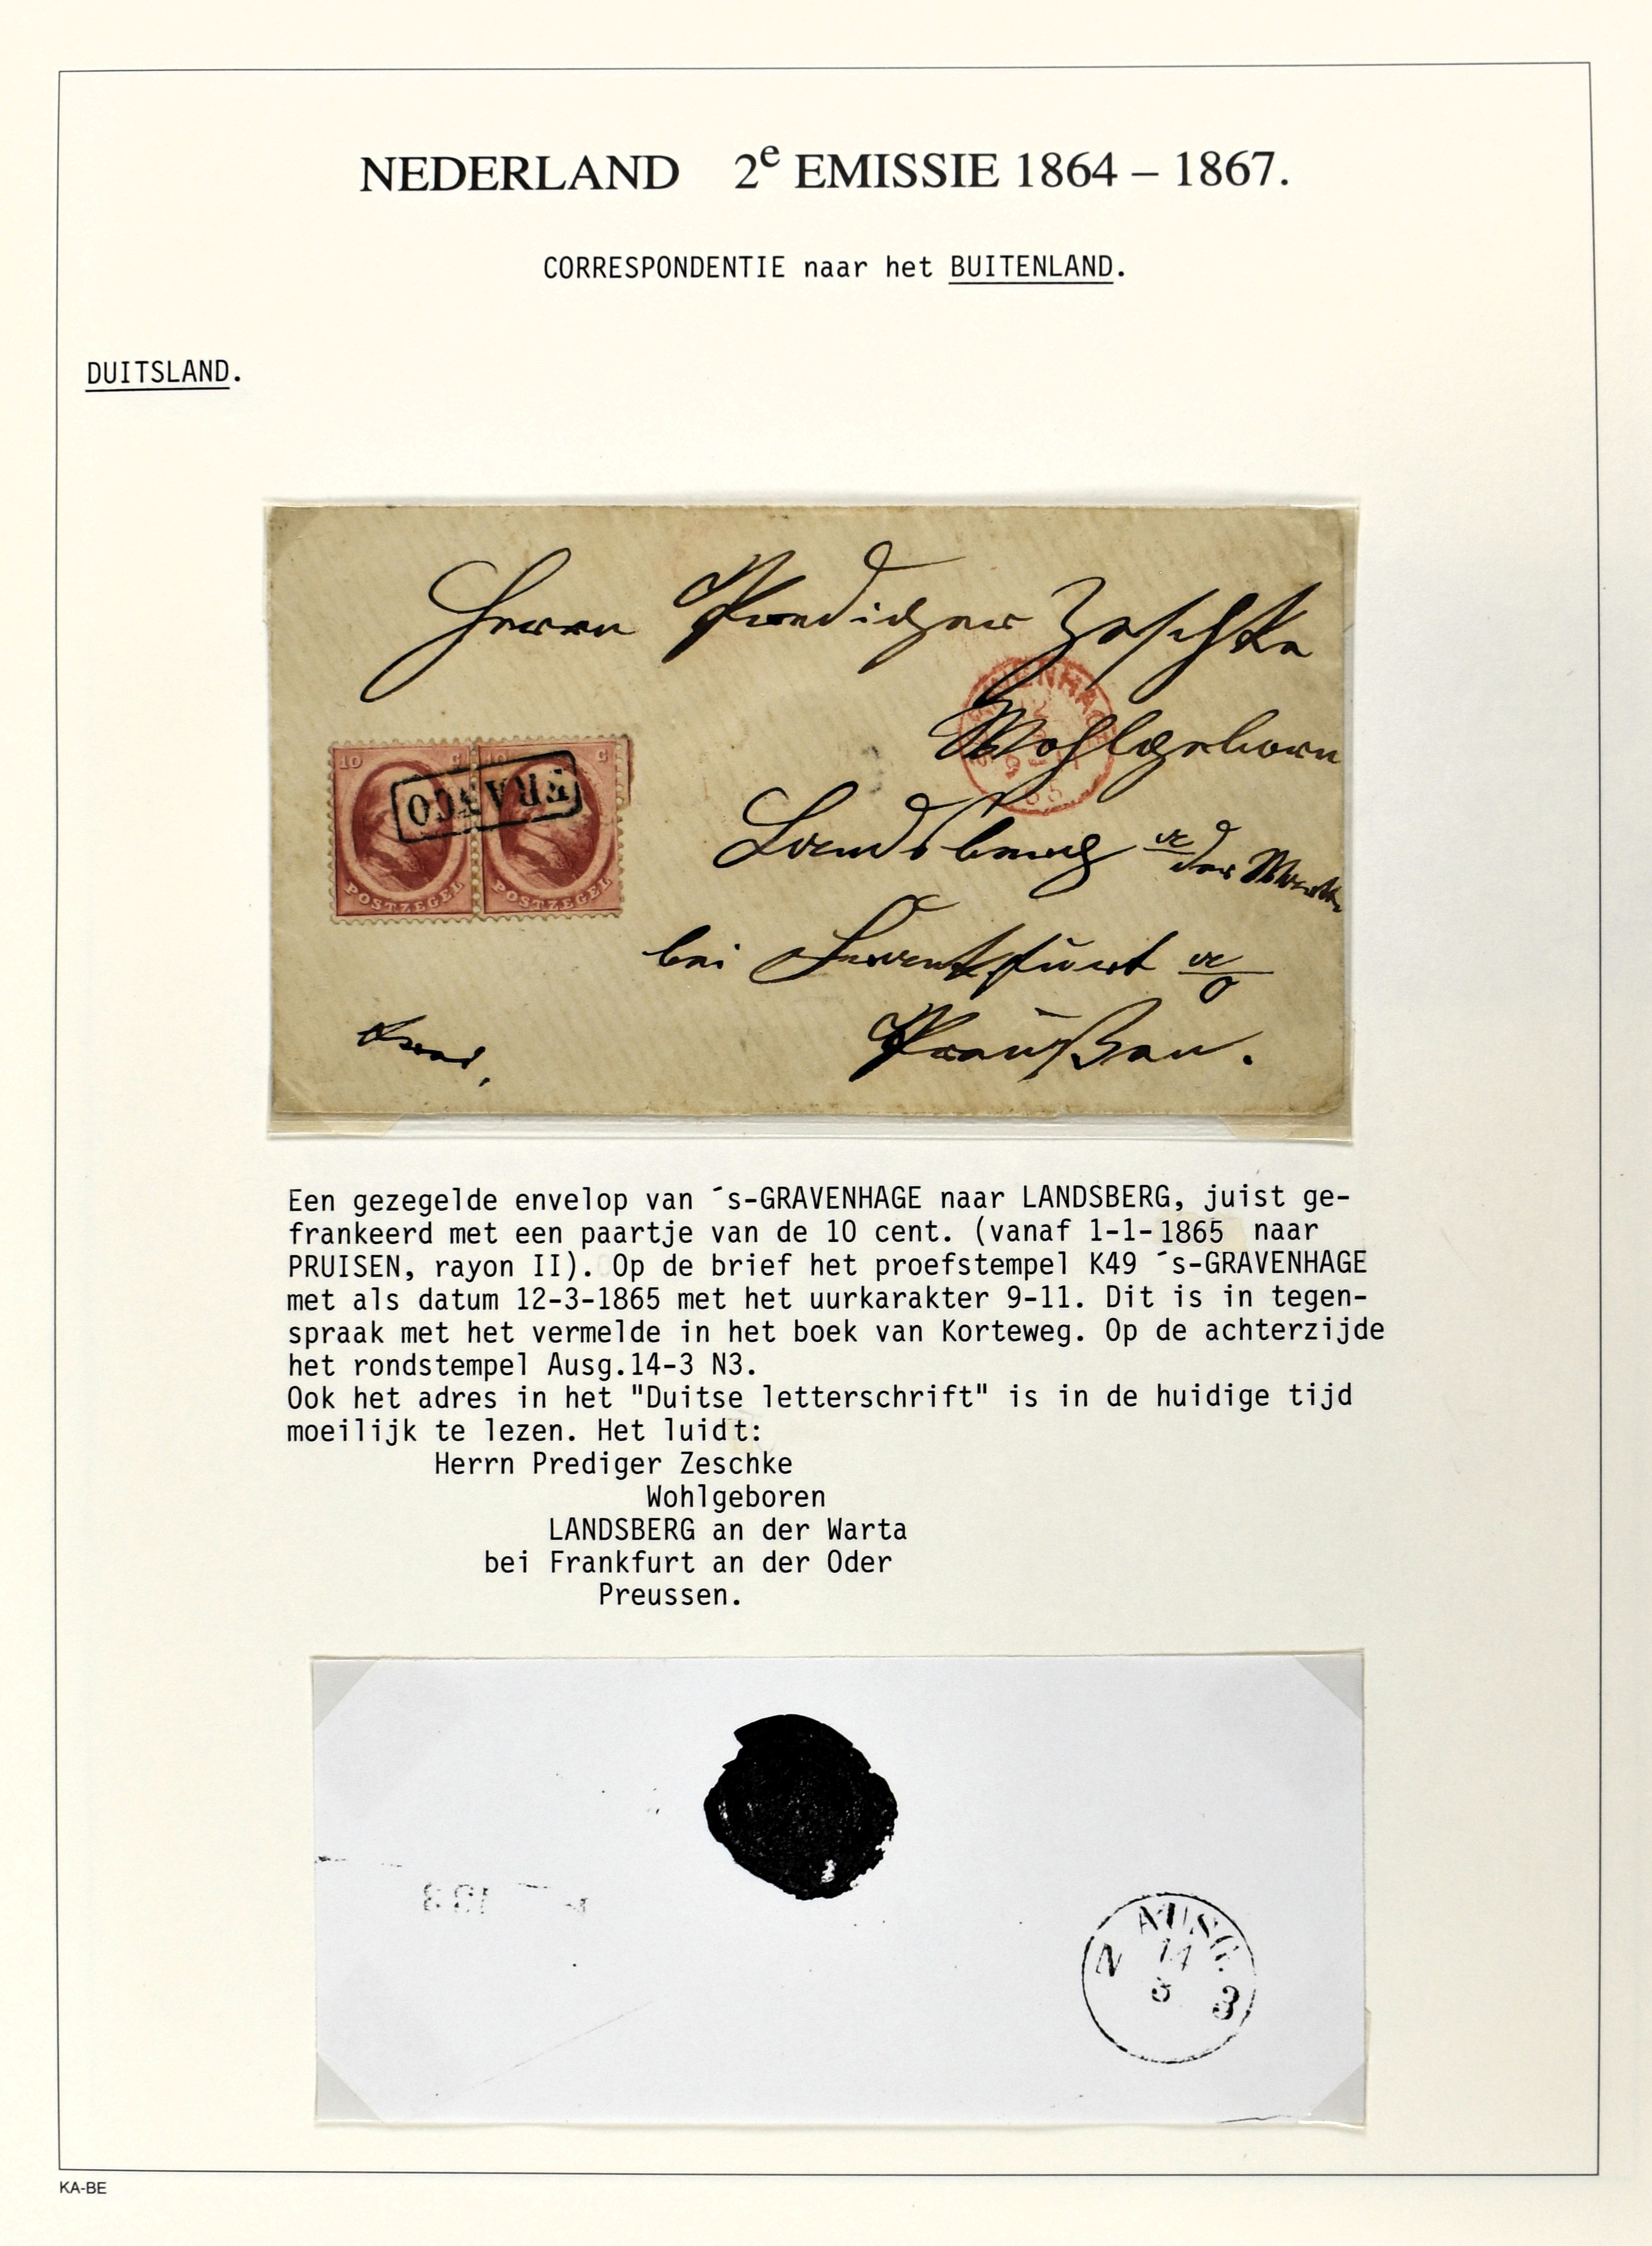 NEDERLAND 2e EMISSIE 1864 – 1867.
CORRESPONDENTIE naar het BUITENLAND.
DUITSLAND.
Herrn Prediger Zeschke
Wohlgeboren
Landsberg a der Warthe
bei Frankfurt a/O
Preußen.
10 C 10 C
FRANCO
POSTZEGEL POSTZEGEL
Een gezegelde envelop van ´s-GRAVENHAGE naar LANDSBERG, juist ge-
frankeerd met een paartje van de 10 cent. (vanaf 1-1-1865 naar
PRUISEN, rayon II). Op de brief het proefstempel K49 ´s-GRAVENHAGE
met als datum 12-3-1865 met het uurkarakter 9-11. Dit is in tegen-
spraak met het vermelde in het boek van Korteweg. Op de achterzijde
het rondstempel Ausg.14-3 N3.
Ook het adres in het "Duitse letterschrift" is in de huidige tijd
moeilijk te lezen. Het luidt:
Herrn Prediger Zeschke
Wohlgeboren
LANDSBERG an der Warta
bei Frankfurt an der Oder
Preussen.
AUSG.
N 14 3
3
KA-BE